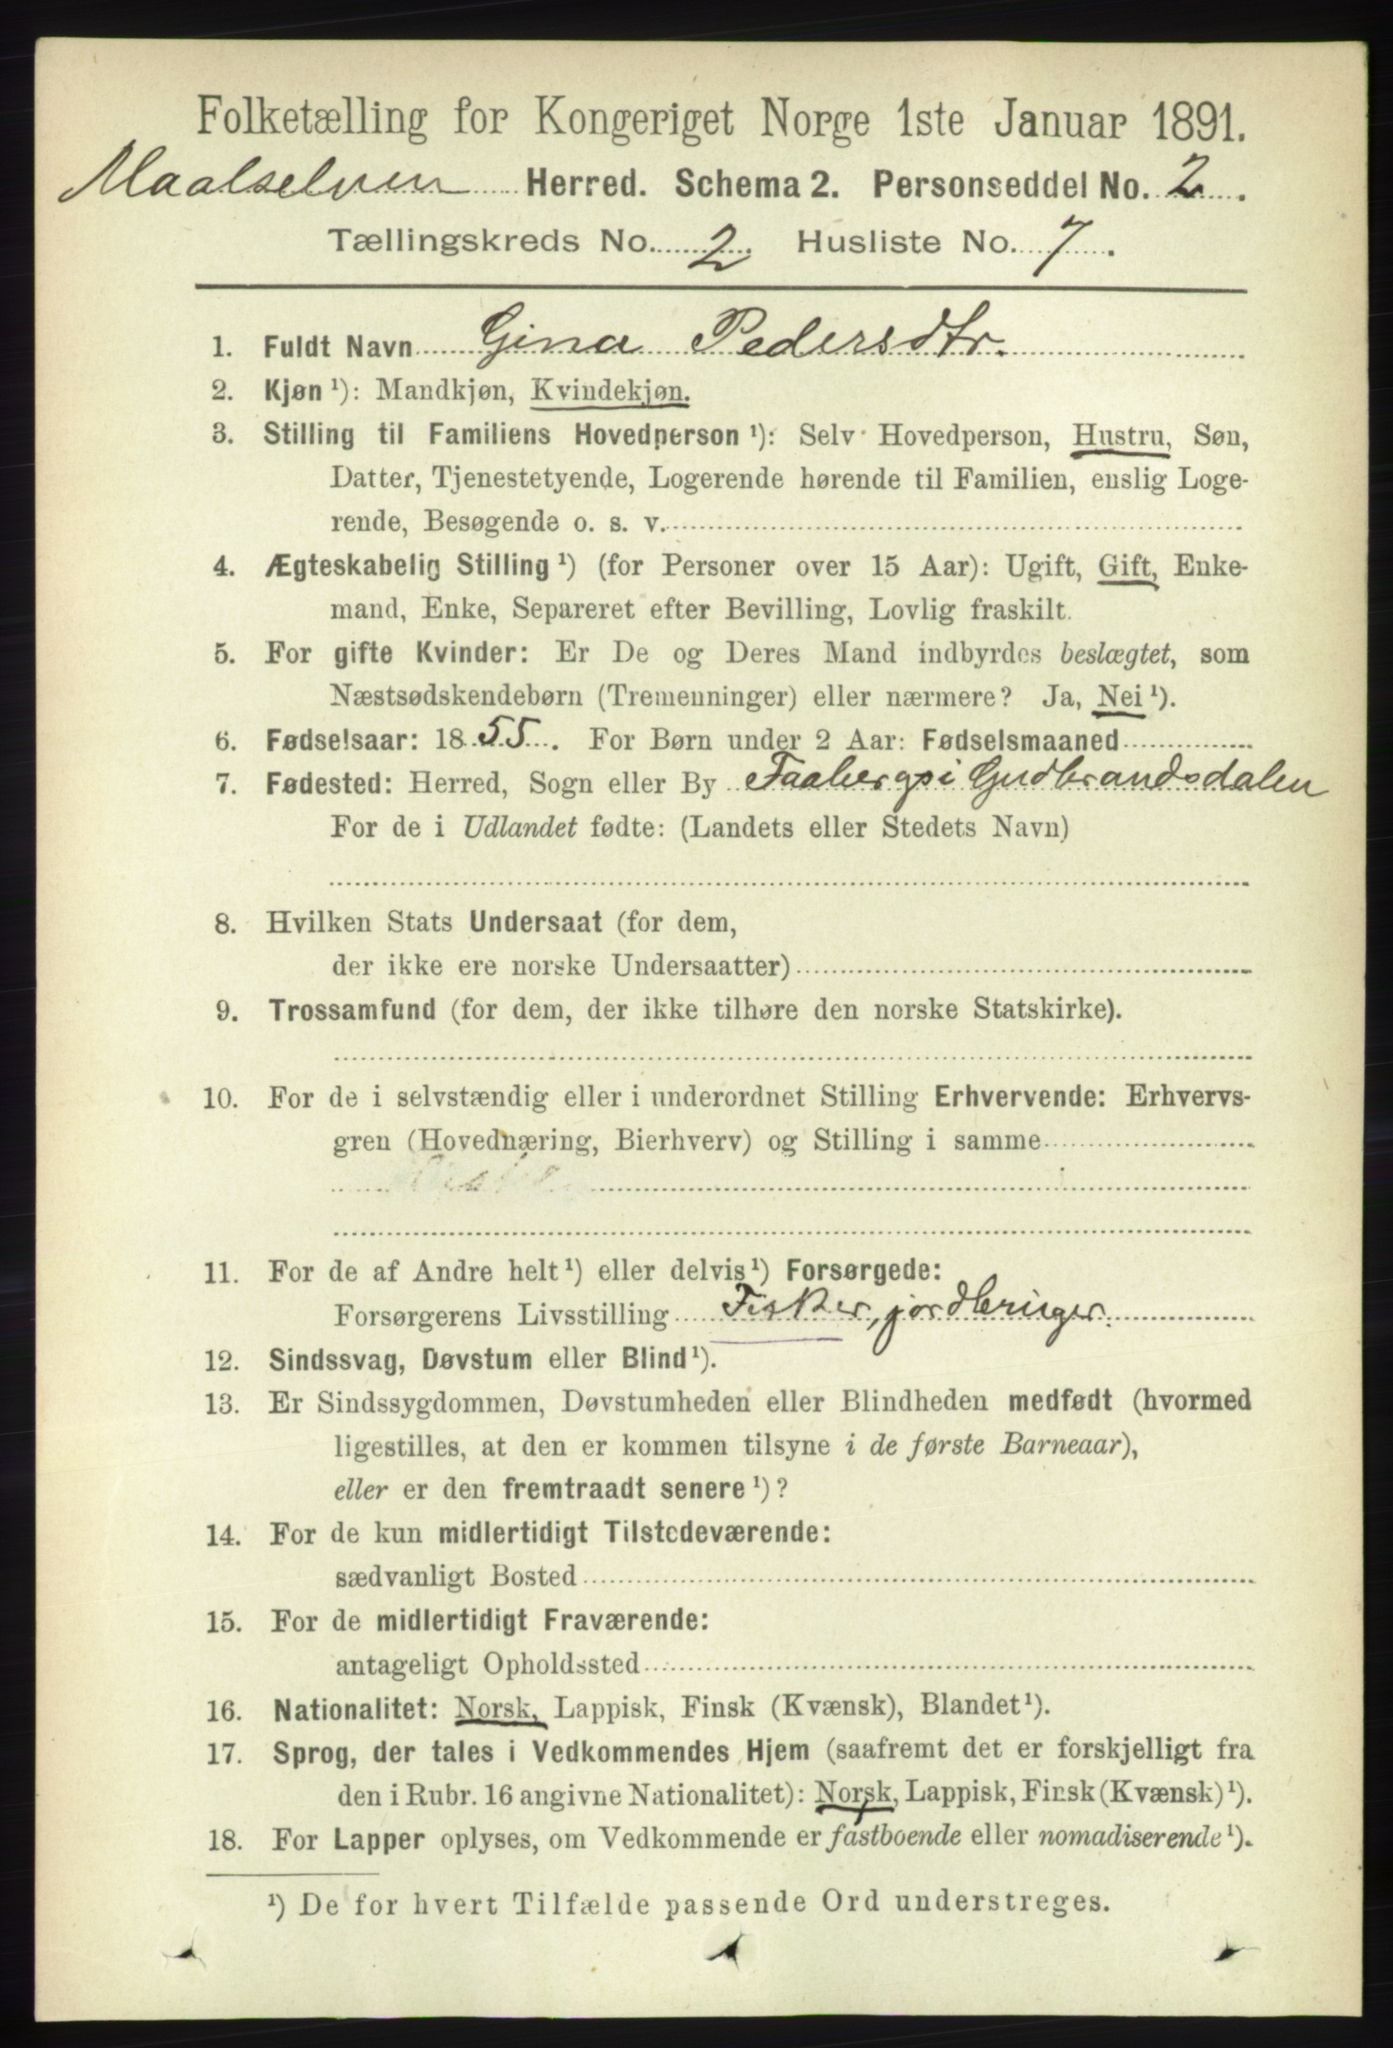 Folketælling for Kongeriget Norge 1ste Januar 1891.
Maalselven Herred. Schema 2. Personseddel No. 2.
Tællingskreds No. 2. Husliste No. 7.
1. Fuldt Navn Gina Pedersdtr.
2. Kjøn ¹): Mandkjøn, Kvindekjøn.
3. Stilling til Familiens Hovedperson ¹): Selv Hovedperson, Hustru, Søn,
Datter, Tjenestetyende, Logerende hørende til Familien, enslig Loge-
rende, Besøgende o. s. v.
4. Ægteskabelig Stilling ¹) (for Personer over 15 Aar): Ugift, Gift, Enke-
mand, Enke, Separeret efter Bevilling, Lovlig fraskilt.
5. For gifte Kvinder: Er De og Deres Mand indbyrdes beslægtet, som
Næstsødskendebørn (Tremenninger) eller nærmere? Ja, Nei ¹).
6. Fødselsaar: 1855. For Børn under 2 Aar: Fødselsmaaned
7. Fødested: Herred, Sogn eller By Faaberg i Gudbrandsdalen
For de i Udlandet fødte: (Landets eller Stedets Navn)
8. Hvilken Stats Undersaat (for dem,
der ikke ere norske Undersaatter)
9. Trossamfund (for dem, der ikke tilhøre den norske Statskirke).
10. For de i selvstændig eller i underordnet Stilling Erhvervende: Erhvervs-
gren (Hovednæring, Bierhverv) og Stilling i samme
11. For de af Andre helt ¹) eller delvis ¹) Forsørgede:
Forsørgerens Livsstilling Fisker, jordbruger.
12. Sindssvag, Døvstum eller Blind ¹).
13. Er Sindssygdommen, Døvstumheden eller Blindheden medfødt (hvormed
ligestilles, at den er kommen tilsyne i de første Barneaar),
eller er den fremtraadt senere ¹)?
14. For de kun midlertidigt Tilstedeværende:
sædvanligt Bosted
15. For de midlertidigt Fraværende:
antageligt Opholdssted
16. Nationalitet: Norsk, Lappisk, Finsk (Kvænsk), Blandet ¹).
17. Sprog, der tales i Vedkommendes Hjem (saafremt det er forskjelligt fra
den i Rubr. 16 angivne Nationalitet): Norsk, Lappisk, Finsk (Kvænsk) ¹).
18. For Lapper oplyses, om Vedkommende er fastboende eller nomadiserende ¹).
¹) De for hvert Tilfælde passende Ord understreges.